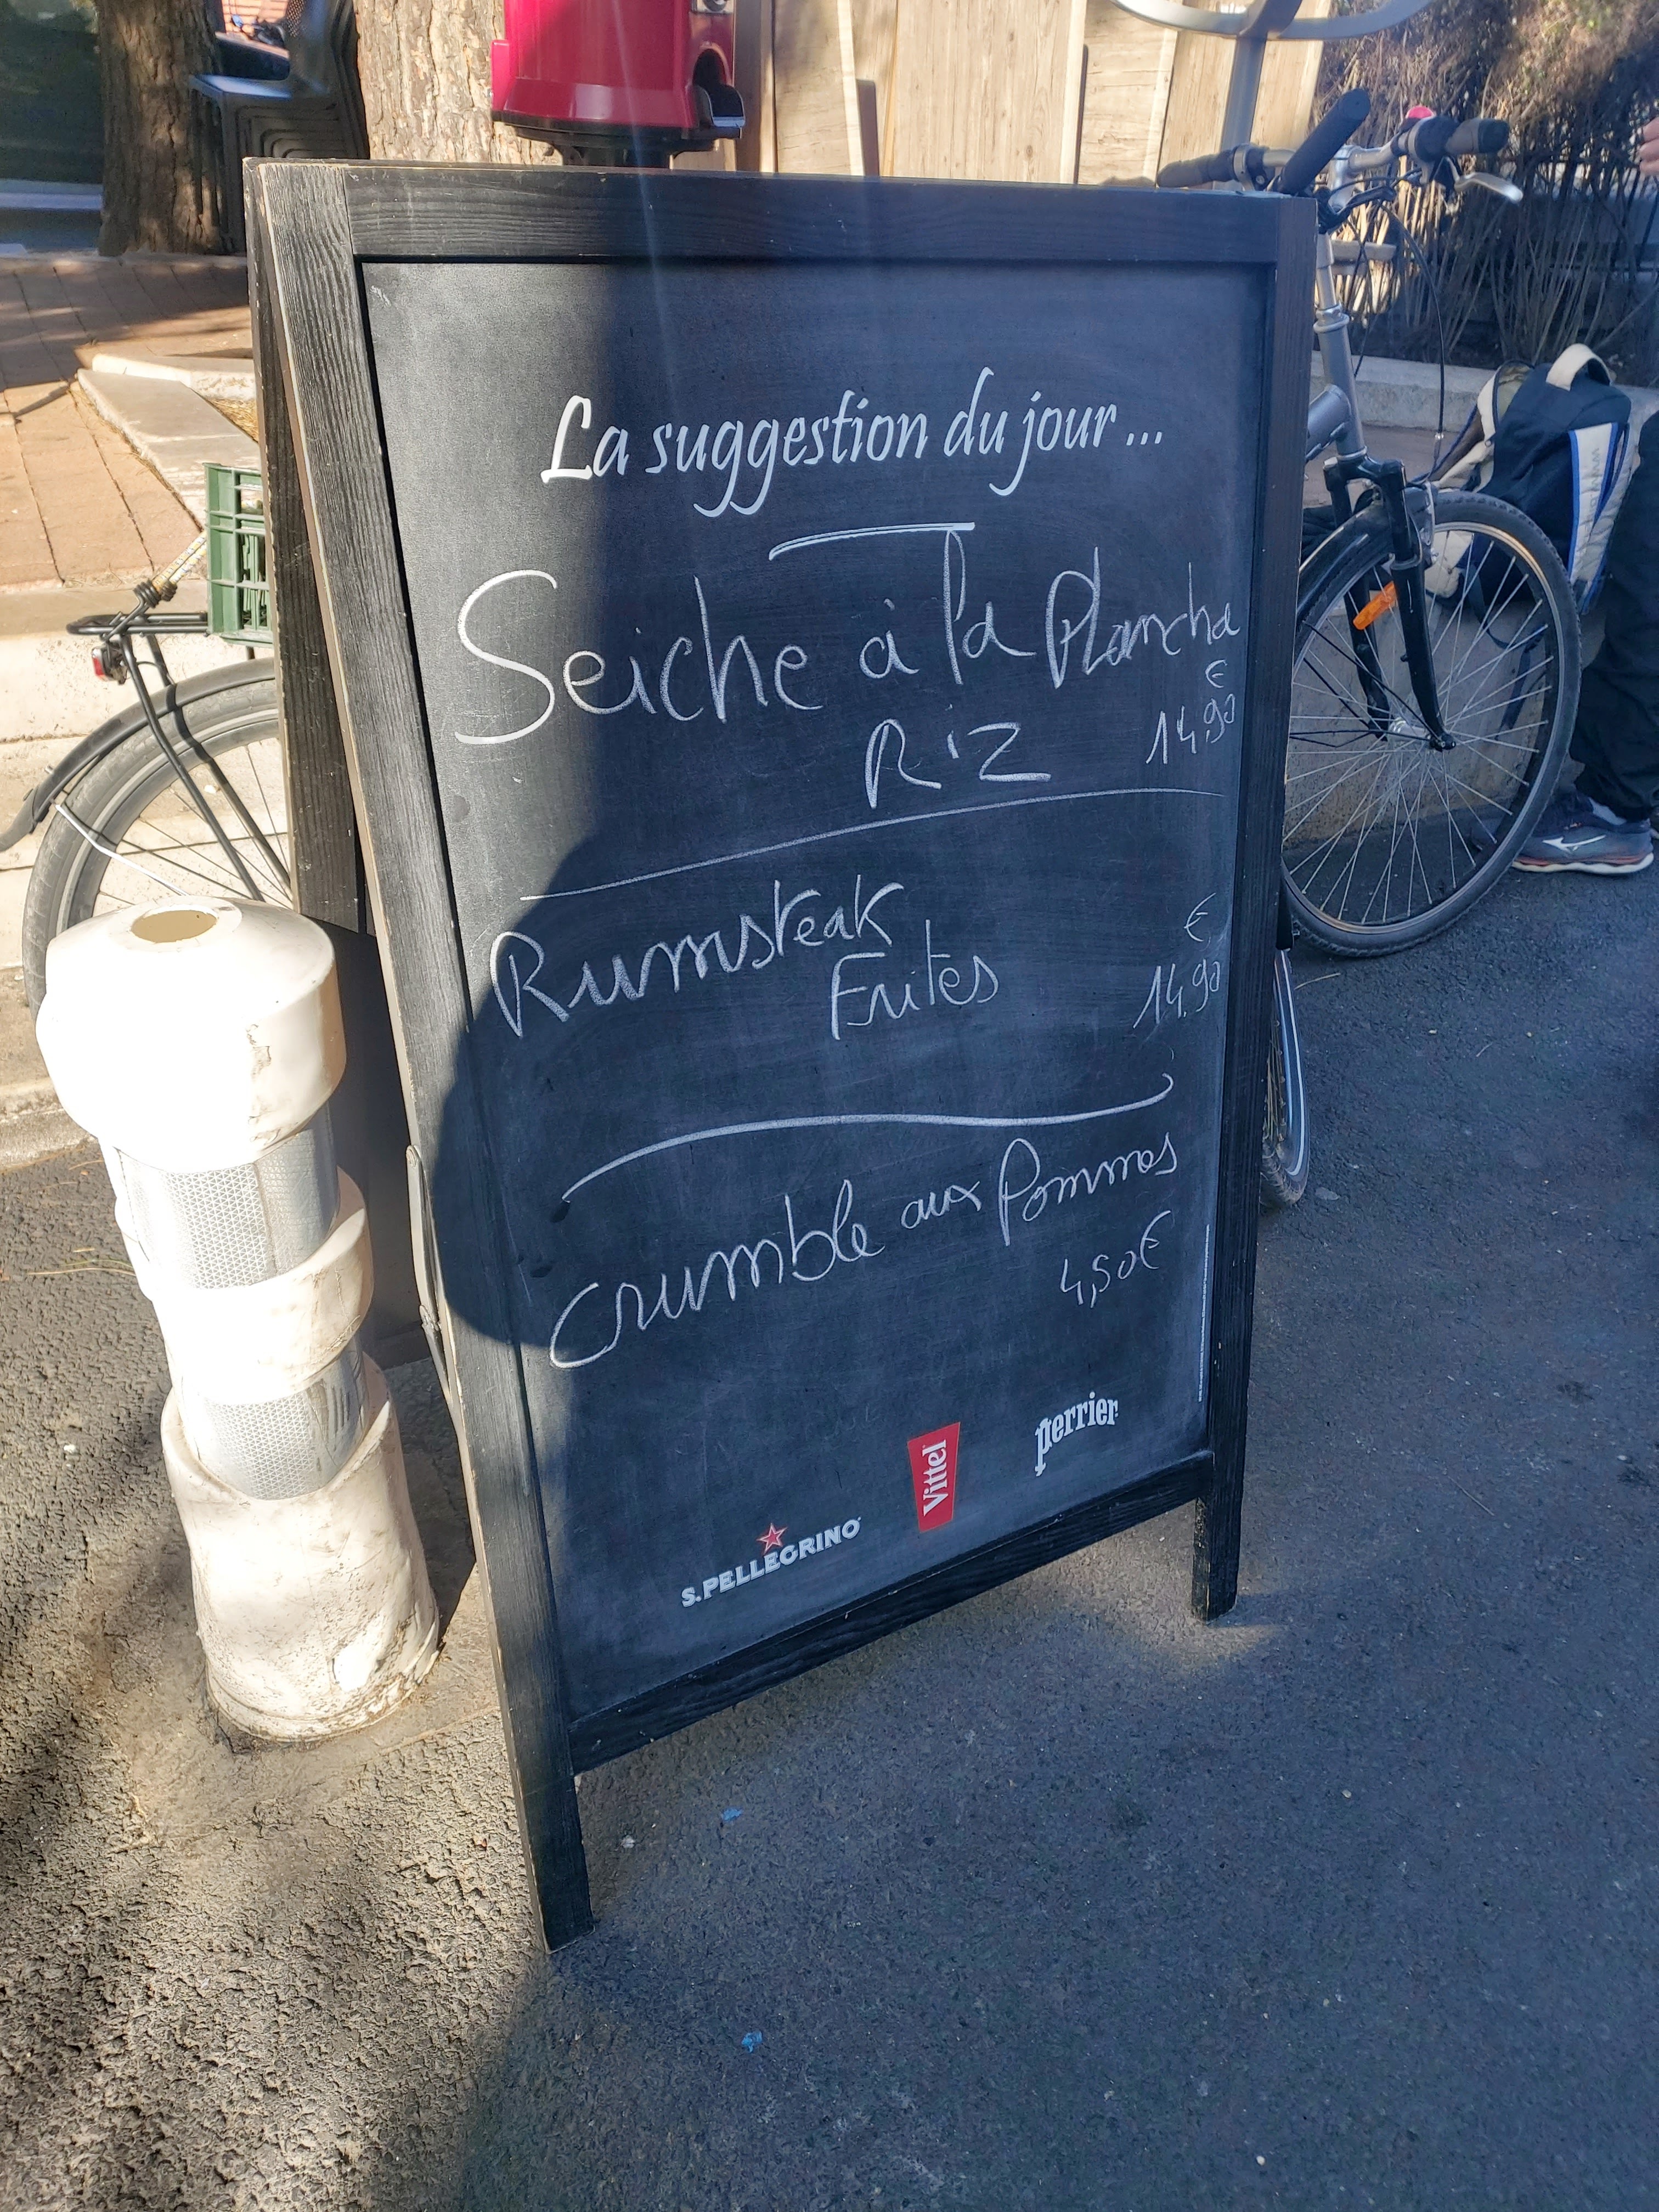 La suggestion du jour...
Seiche à la Plancha
€
Riz 14,90
Rumsteak
€
Frites 14,90
Crumble aux Pommes
4,50€
perrier
Vittel
S.PELLEGRINO